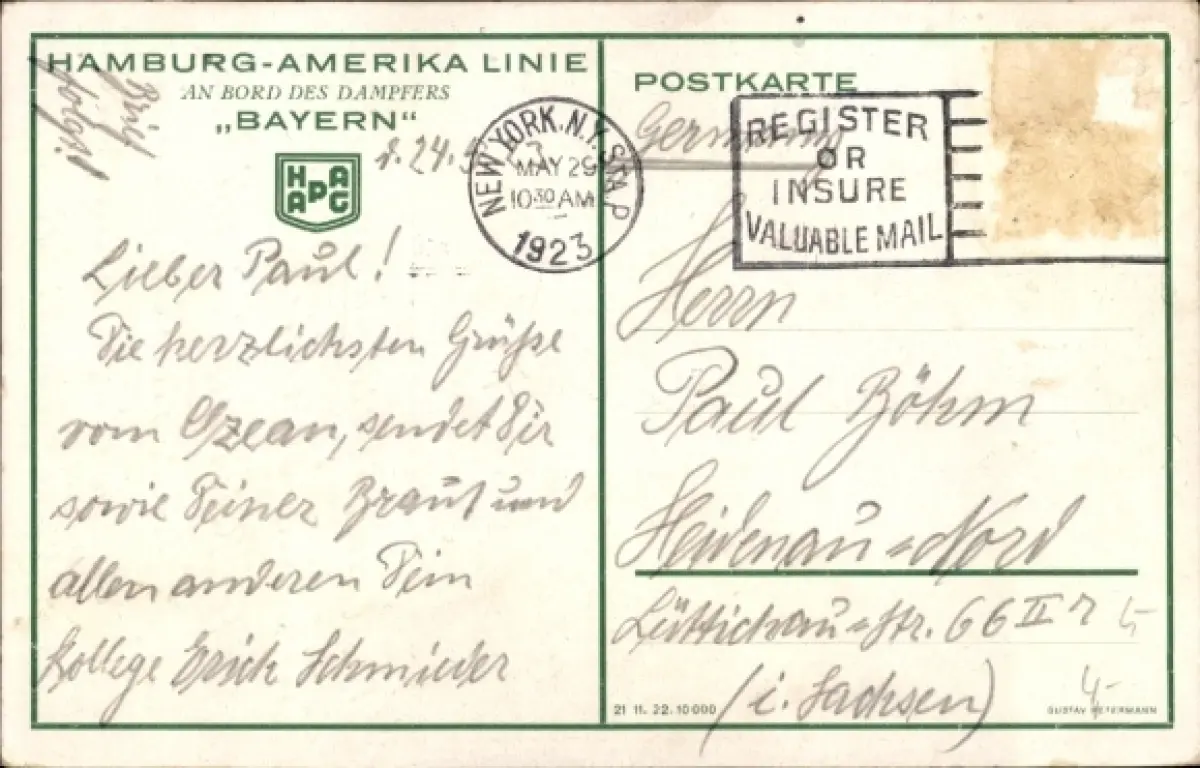 HAMBURG-AMERIKA LINIE
AN BORD DES DAMPFERS
„BAYERN“
d. 24.5.
23
HAPAG
Lieber Paul!
Die herzlichsten Grüße
vom Ozean, sendet Dir
sowie Deiner Braut und
allen anderen Dein
Kollege Erich Schmieder
NEW YORK, N.Y. STA. P
MAY 29
10 30 AM
1923
POSTKARTE
Germany
REGISTER
OR
INSURE
VALUABLE MAIL
Herrn
Paul Böhm
Heidenau=Nord
Lüttichau=Str. 66 II r
(i. Sachsen)
4
21 11. 22. 10 000
GUSTAV PETERMANN